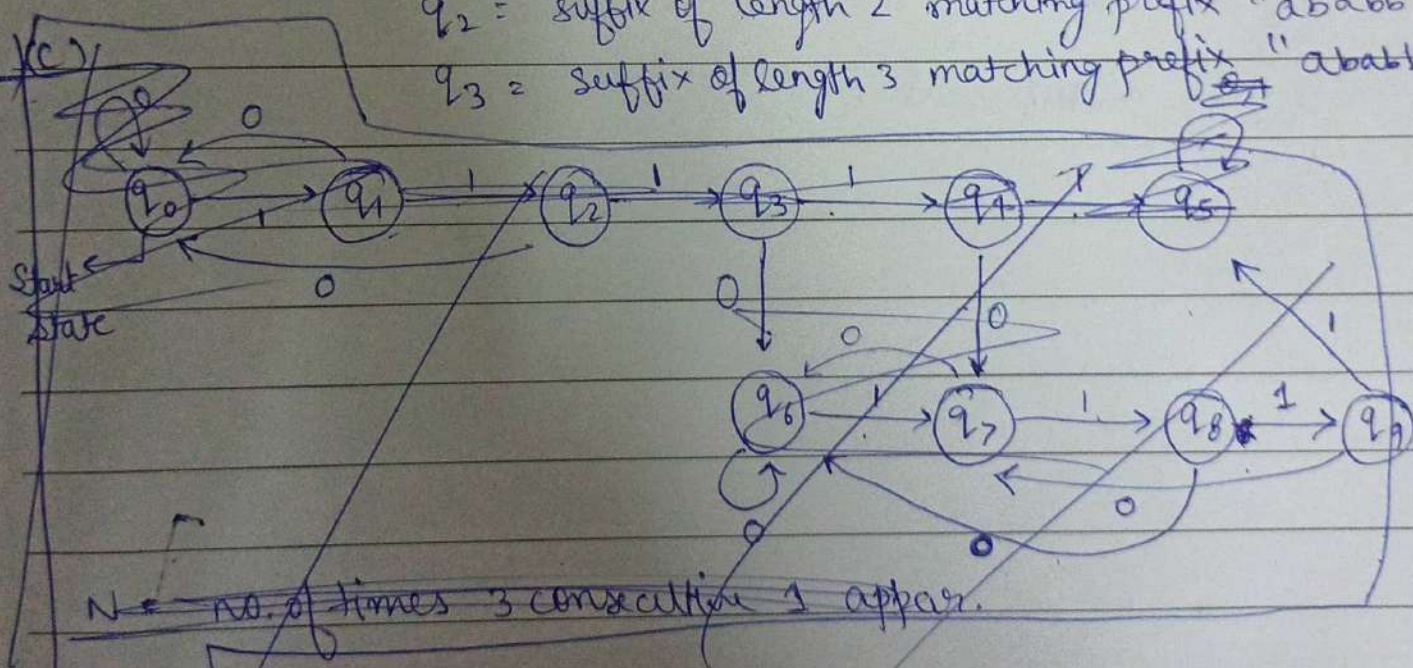 q2 = suffix of length 2 matching prefix "ababb
(C)
q3 = suffix of length 3 matching prefix "ababb
0
0
q0 1 q1 1 q2 1 q3 1 q4 1 q5
Start
State
0
0
0
1
0
q6 1 q7 1 q8 1 q9
0
0
0
N = no. of times 3 consecutive 1 appar.